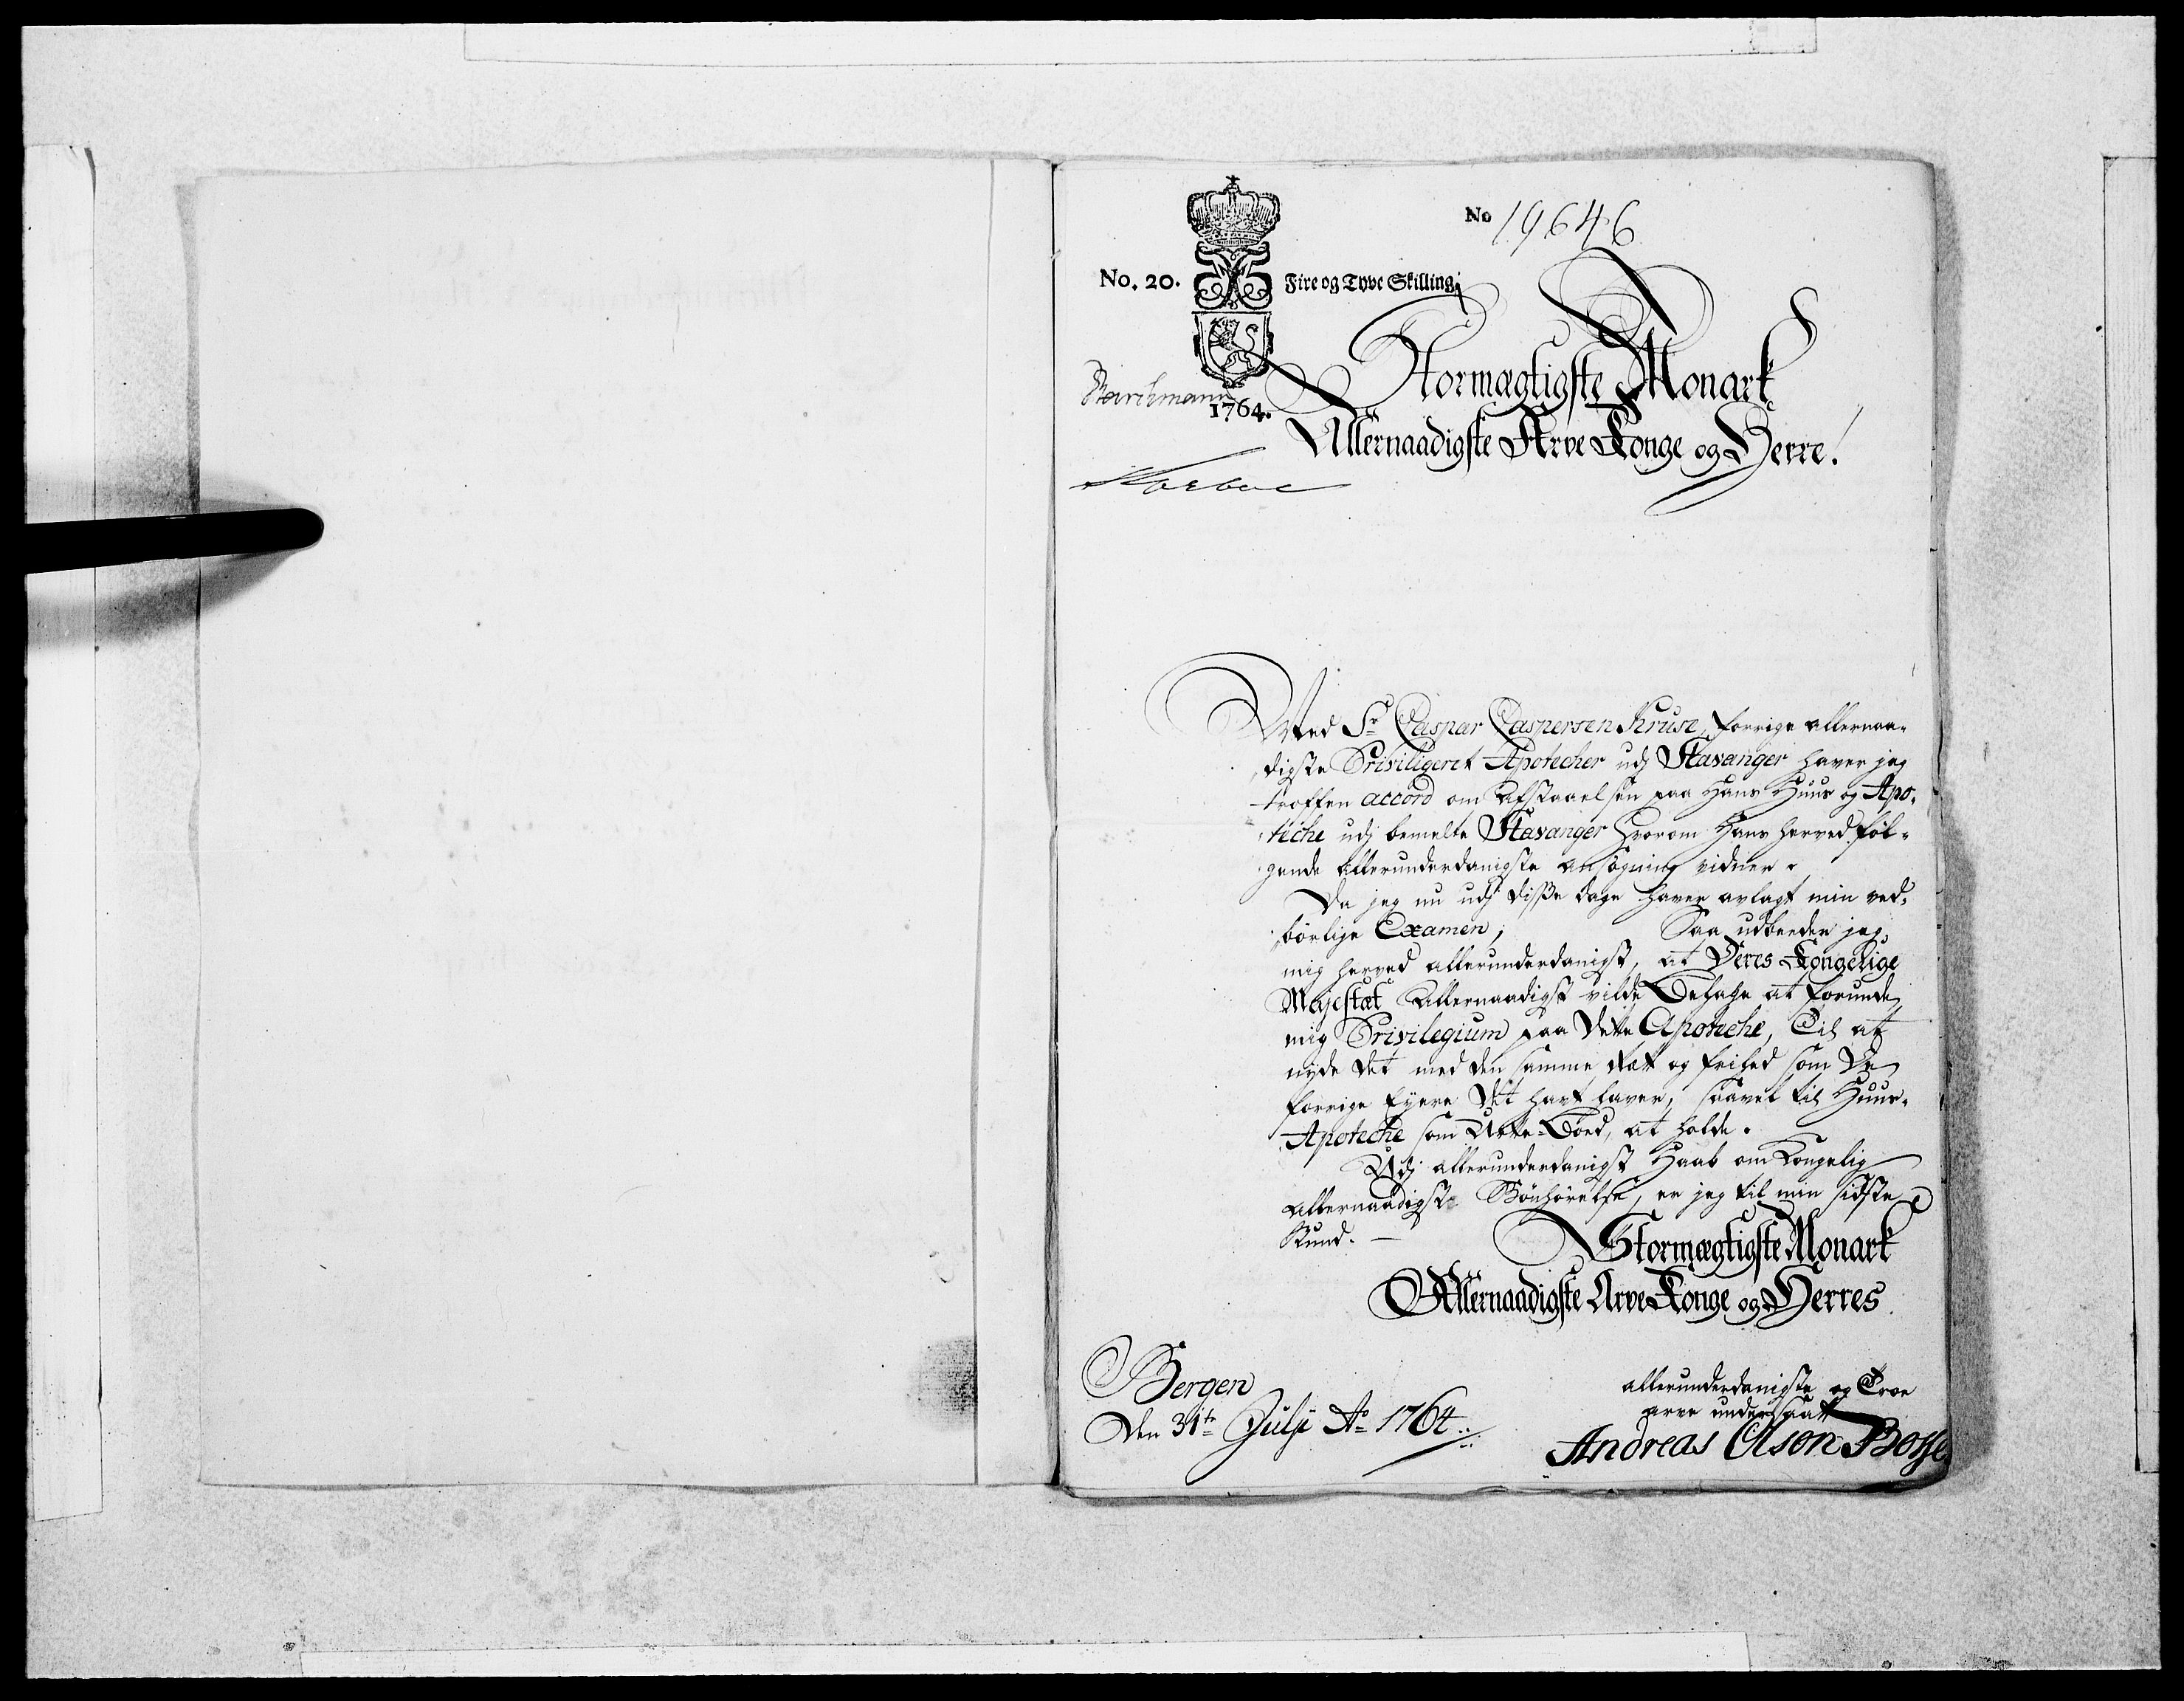 No 19646
No. 20. Fire og Tyve Skilling.
Stormægtigste Monark
1764.
Allernaadigste Arve Konge og Herre!
Med Sr. Caspar Caspersen Kruse, forrige allernaa-
digste Priviligeret Apothecher udj Stavanger haver jeg
troffen accord om Afstaaelsen paa Hans Huus og Apo-
teche udj bemelte Stavanger hvorom Hans herved føl-
gende allerunderdanigste ansøgning vidner.
Da jeg nu udj disse dage haver avlagt min ved-
børlige Examen, Saa udbeeder jeg
mig herved allerunderdanigst, at Deres Kongelige
Majestæt Allernaadigst vilde Behage at forunde
mig Privilegium paa Dette Apoteche, Til at
nyde det med den samme Ræt og frihed som De
forrige Eyere Det hart haver, saavel til Huus-
Apoteche som Urte-Boed, at holde.
Udj allerunderdanigst Haab om Kongelig
allernaadigste Bønhørelse, er jeg til min sidste
Stund.
Stormægtigste Monark
Allernaadigste Arve Konge og Herres
Bergen
Den 31te Julji Ao 1764
allerunderdanigste og Troe
arve undersaatt
Andreas Olson Bosse